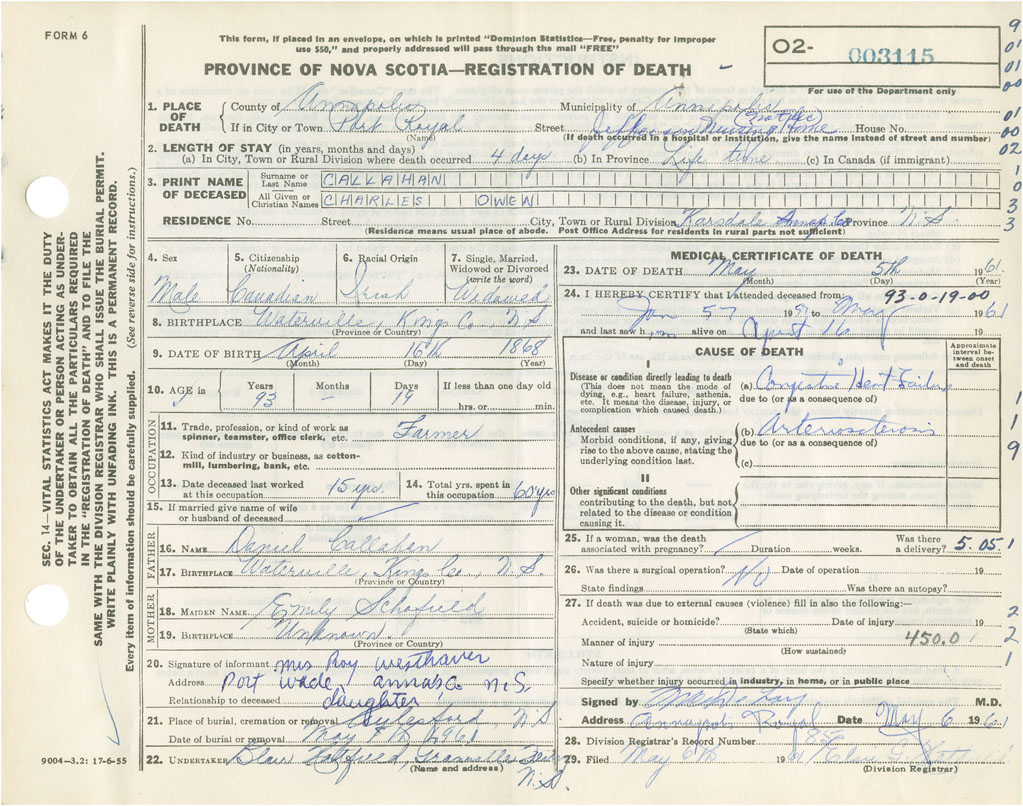 FORM 6
This form, if placed in an envelope, on which is printed "Dominion Statistics—Free, penalty for improper
use $50," and properly addressed will pass through the mail "FREE"
PROVINCE OF NOVA SCOTIA—REGISTRATION OF DEATH
02- 003115
For use of the Department only
1. PLACE OF DEATH County of Annapolis Municipality of Annapolis
If in City or Town Port Royal Street Jefferson Nursing Home House No.
(Name) (If death occurred in a hospital or institution, give the name instead of street and number)
2. LENGTH OF STAY (in years, months and days)
(a) In City, Town or Rural Division where death occurred 4 days (b) In Province Life time (c) In Canada (if immigrant)
3. PRINT NAME OF DECEASED Surname or Last Name CALLAHAN
All Given or Christian Names CHARLES OWEN
RESIDENCE No. Street City, Town or Rural Division Karsdale Annap. Co Province N.S.
(Residence means usual place of abode. Post Office Address for residents in rural parts not sufficient)
4. Sex Male
5. Citizenship (Nationality) Canadian
6. Racial Origin Irish
7. Single, Married, Widowed or Divorced (write the word) Widowed
8. BIRTHPLACE Waterville, Kings Co., N.S.
(Province or Country)
9. DATE OF BIRTH April 16th 1868
(Month) (Day) (Year)
10. AGE in Years 93 Months – Days 19 If less than one day old hrs. or min.
OCCUPATION
11. Trade, profession, or kind of work as spinner, teamster, office clerk, etc. Farmer
12. Kind of industry or business, as cotton-mill, lumbering, bank, etc.
13. Date deceased last worked at this occupation 15 yrs. 14. Total yrs. spent in this occupation 60 yrs
15. If married give name of wife or husband of deceased
FATHER
16. NAME Daniel Callahan
17. BIRTHPLACE Waterville, Kings Co., N.S.
(Province or Country)
MOTHER
18. MAIDEN NAME Emily Schofield
19. BIRTHPLACE Unknown.
(Province or Country)
20. Signature of informant Mrs Roy Westhaver
Address Port Wade, Annas Co. N.S.
Relationship to deceased daughter
21. Place of burial, cremation or removal Aylesford N.S.
Date of burial or removal May 1961
22. UNDERTAKER Blair Granville Ferry N.S.
(Name and address)
MEDICAL CERTIFICATE OF DEATH
23. DATE OF DEATH May 5th 1961
(Month) (Day) (Year)
24. I HEREBY CERTIFY that I attended deceased from 93-0-19-00
Jan 57 19 to May 1961
and last saw him alive on 16 19
CAUSE OF DEATH
Approximate interval between onset and death
I
Disease or condition directly leading to death (a) Congestive Heart Failure
(This does not mean the mode of dying, e.g., heart failure, asthenia, etc. It means the disease, injury, or complication which caused death.)
due to (or as a consequence of)
Antecedent causes (b) Arteriosclerosis
Morbid conditions, if any, giving rise to the above cause, stating the underlying condition last.
due to (or as a consequence of)
(c)
II
Other significant conditions
contributing to the death, but not related to the disease or condition causing it.
25. If a woman, was the death associated with pregnancy? Duration weeks. Was there a delivery? 5.051
26. Was there a surgical operation? No Date of operation 19
State findings Was there an autopsy?
27. If death was due to external causes (violence) fill in also the following:—
Accident, suicide or homicide? Date of injury 19
(State which)
Manner of injury 450.0
(How sustained)
Nature of injury
Specify whether injury occurred in industry, in home, or in public place
Signed by M.D.
Address Annapolis Royal Date May 6 1961
28. Division Registrar's Record Number
29. Filed May 6th 1961
(Division Registrar)
SEC. 14—VITAL STATISTICS ACT MAKES IT THE DUTY
OF THE UNDERTAKER OR PERSON ACTING AS UNDER-
TAKER TO OBTAIN ALL THE PARTICULARS REQUIRED
IN THE "REGISTRATION OF DEATH" AND TO FILE THE
SAME WITH THE DIVISION REGISTRAR WHO SHALL ISSUE THE BURIAL PERMIT.
WRITE PLAINLY WITH UNFADING INK. THIS IS A PERMANENT RECORD.
Every item of information should be carefully supplied. (See reverse side for instructions.)
9004-3.2: 17-6-55
9
01
01
00
01
00
02
1
0
3
3
1
1
9
1
2
2
1